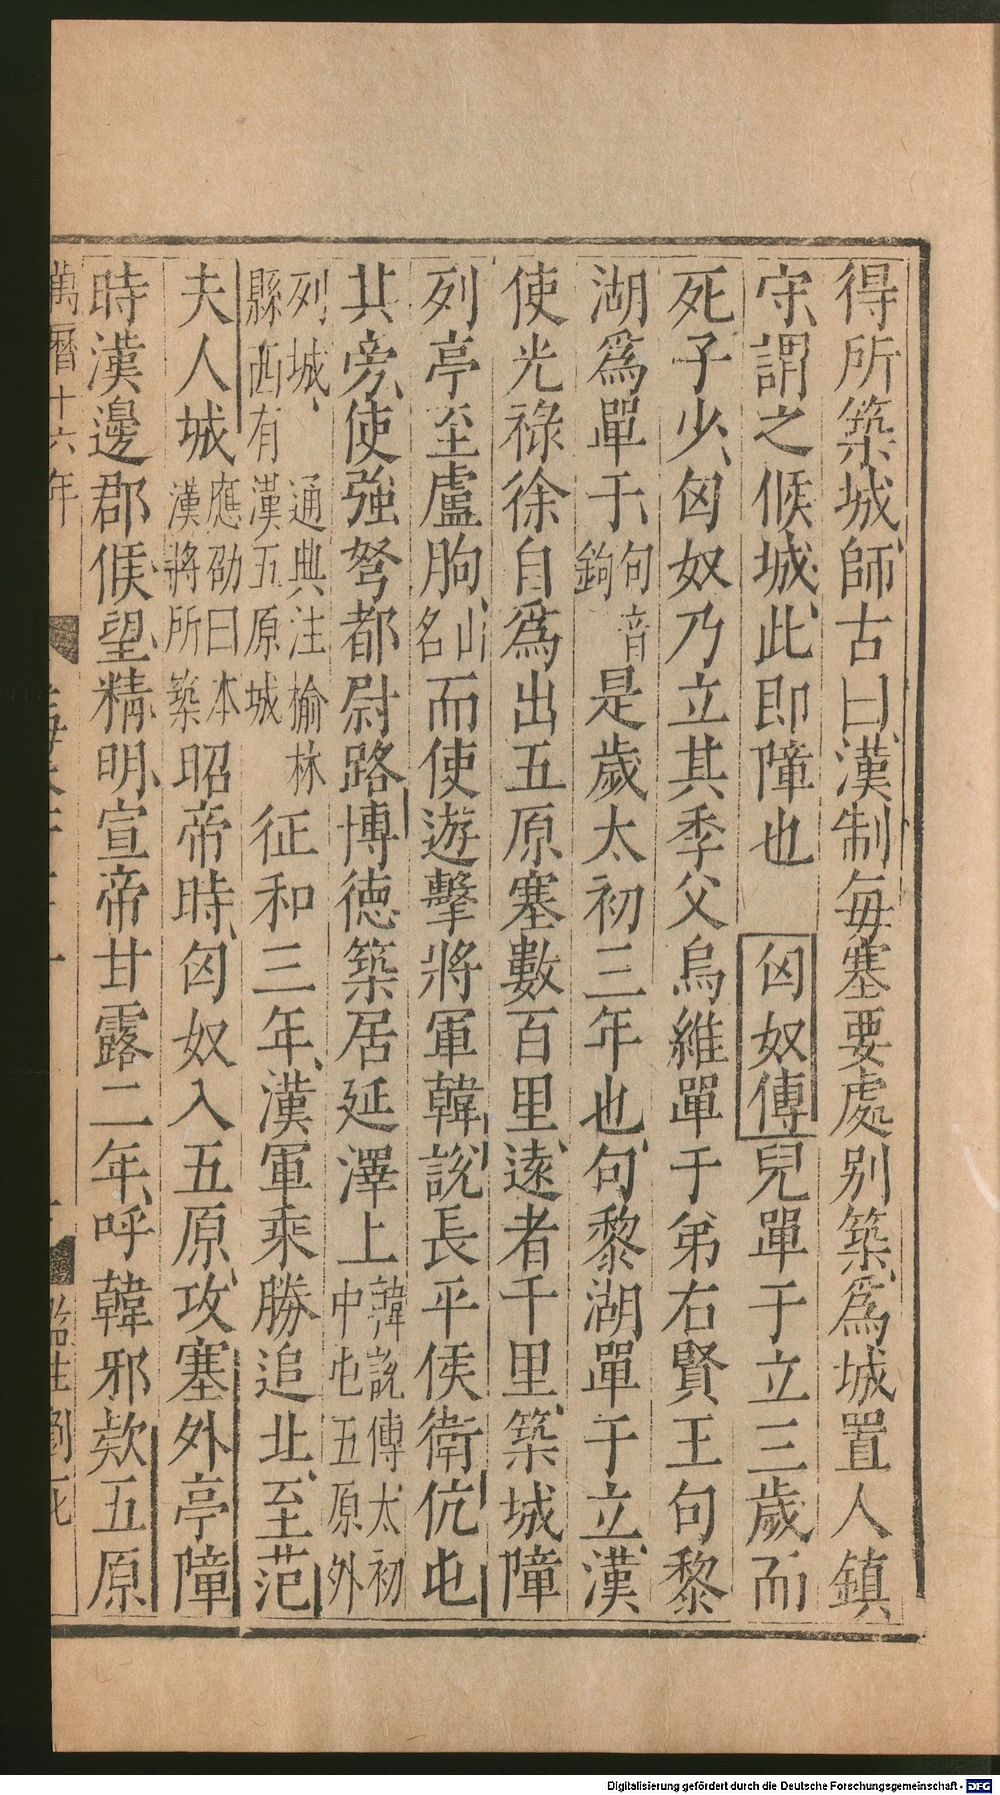 得所築城師古曰漢制每塞要處別築爲城置人鎮
守謂之候城此即障也 匈奴傳兒單于立三歲而
死子少匈奴乃立其季父烏維單于弟右賢王句黎
湖爲單于句音鉤是歲太初三年也句黎湖單于立漢
使光祿徐自爲出五原塞數百里遠者千里築城障
列亭至盧朐山名而使遊擊將軍韓說長平侯衛伉屯
其旁使強弩都尉路博徳築居延澤上韓說傳太初中屯五原外
列城通典注榆林縣西有漢五原城征和三年漢軍乘勝追北至范
夫人城應劭曰本漢將所築昭帝時匈奴入五原攻塞外亭障
時漢邊郡候望精明宣帝甘露二年呼韓邪欵五原
萬曆十六年
監生劉
Digitalisierung gefördert durch die Deutsche Forschungsgemeinschaft - DFG